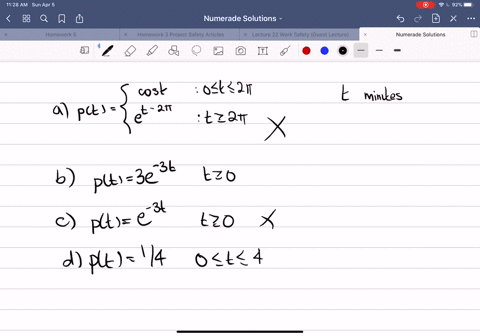 11:28 AM Sun Apr 5
92%
Numerade Solutions
Homework 3 Project Safety Articles
Lecture 22 Work Safety (Guest Lecture)
Numerade Solutions
a) p(t) = { cost : 0≤t≤2π
e^{t-2π} : t≥2π X
t minutes
b) p(t) = 3e^{-3t} t≥0
c) p(t) = e^{-3t} t≥0 X
d) p(t) = 1/4 0≤t≤4